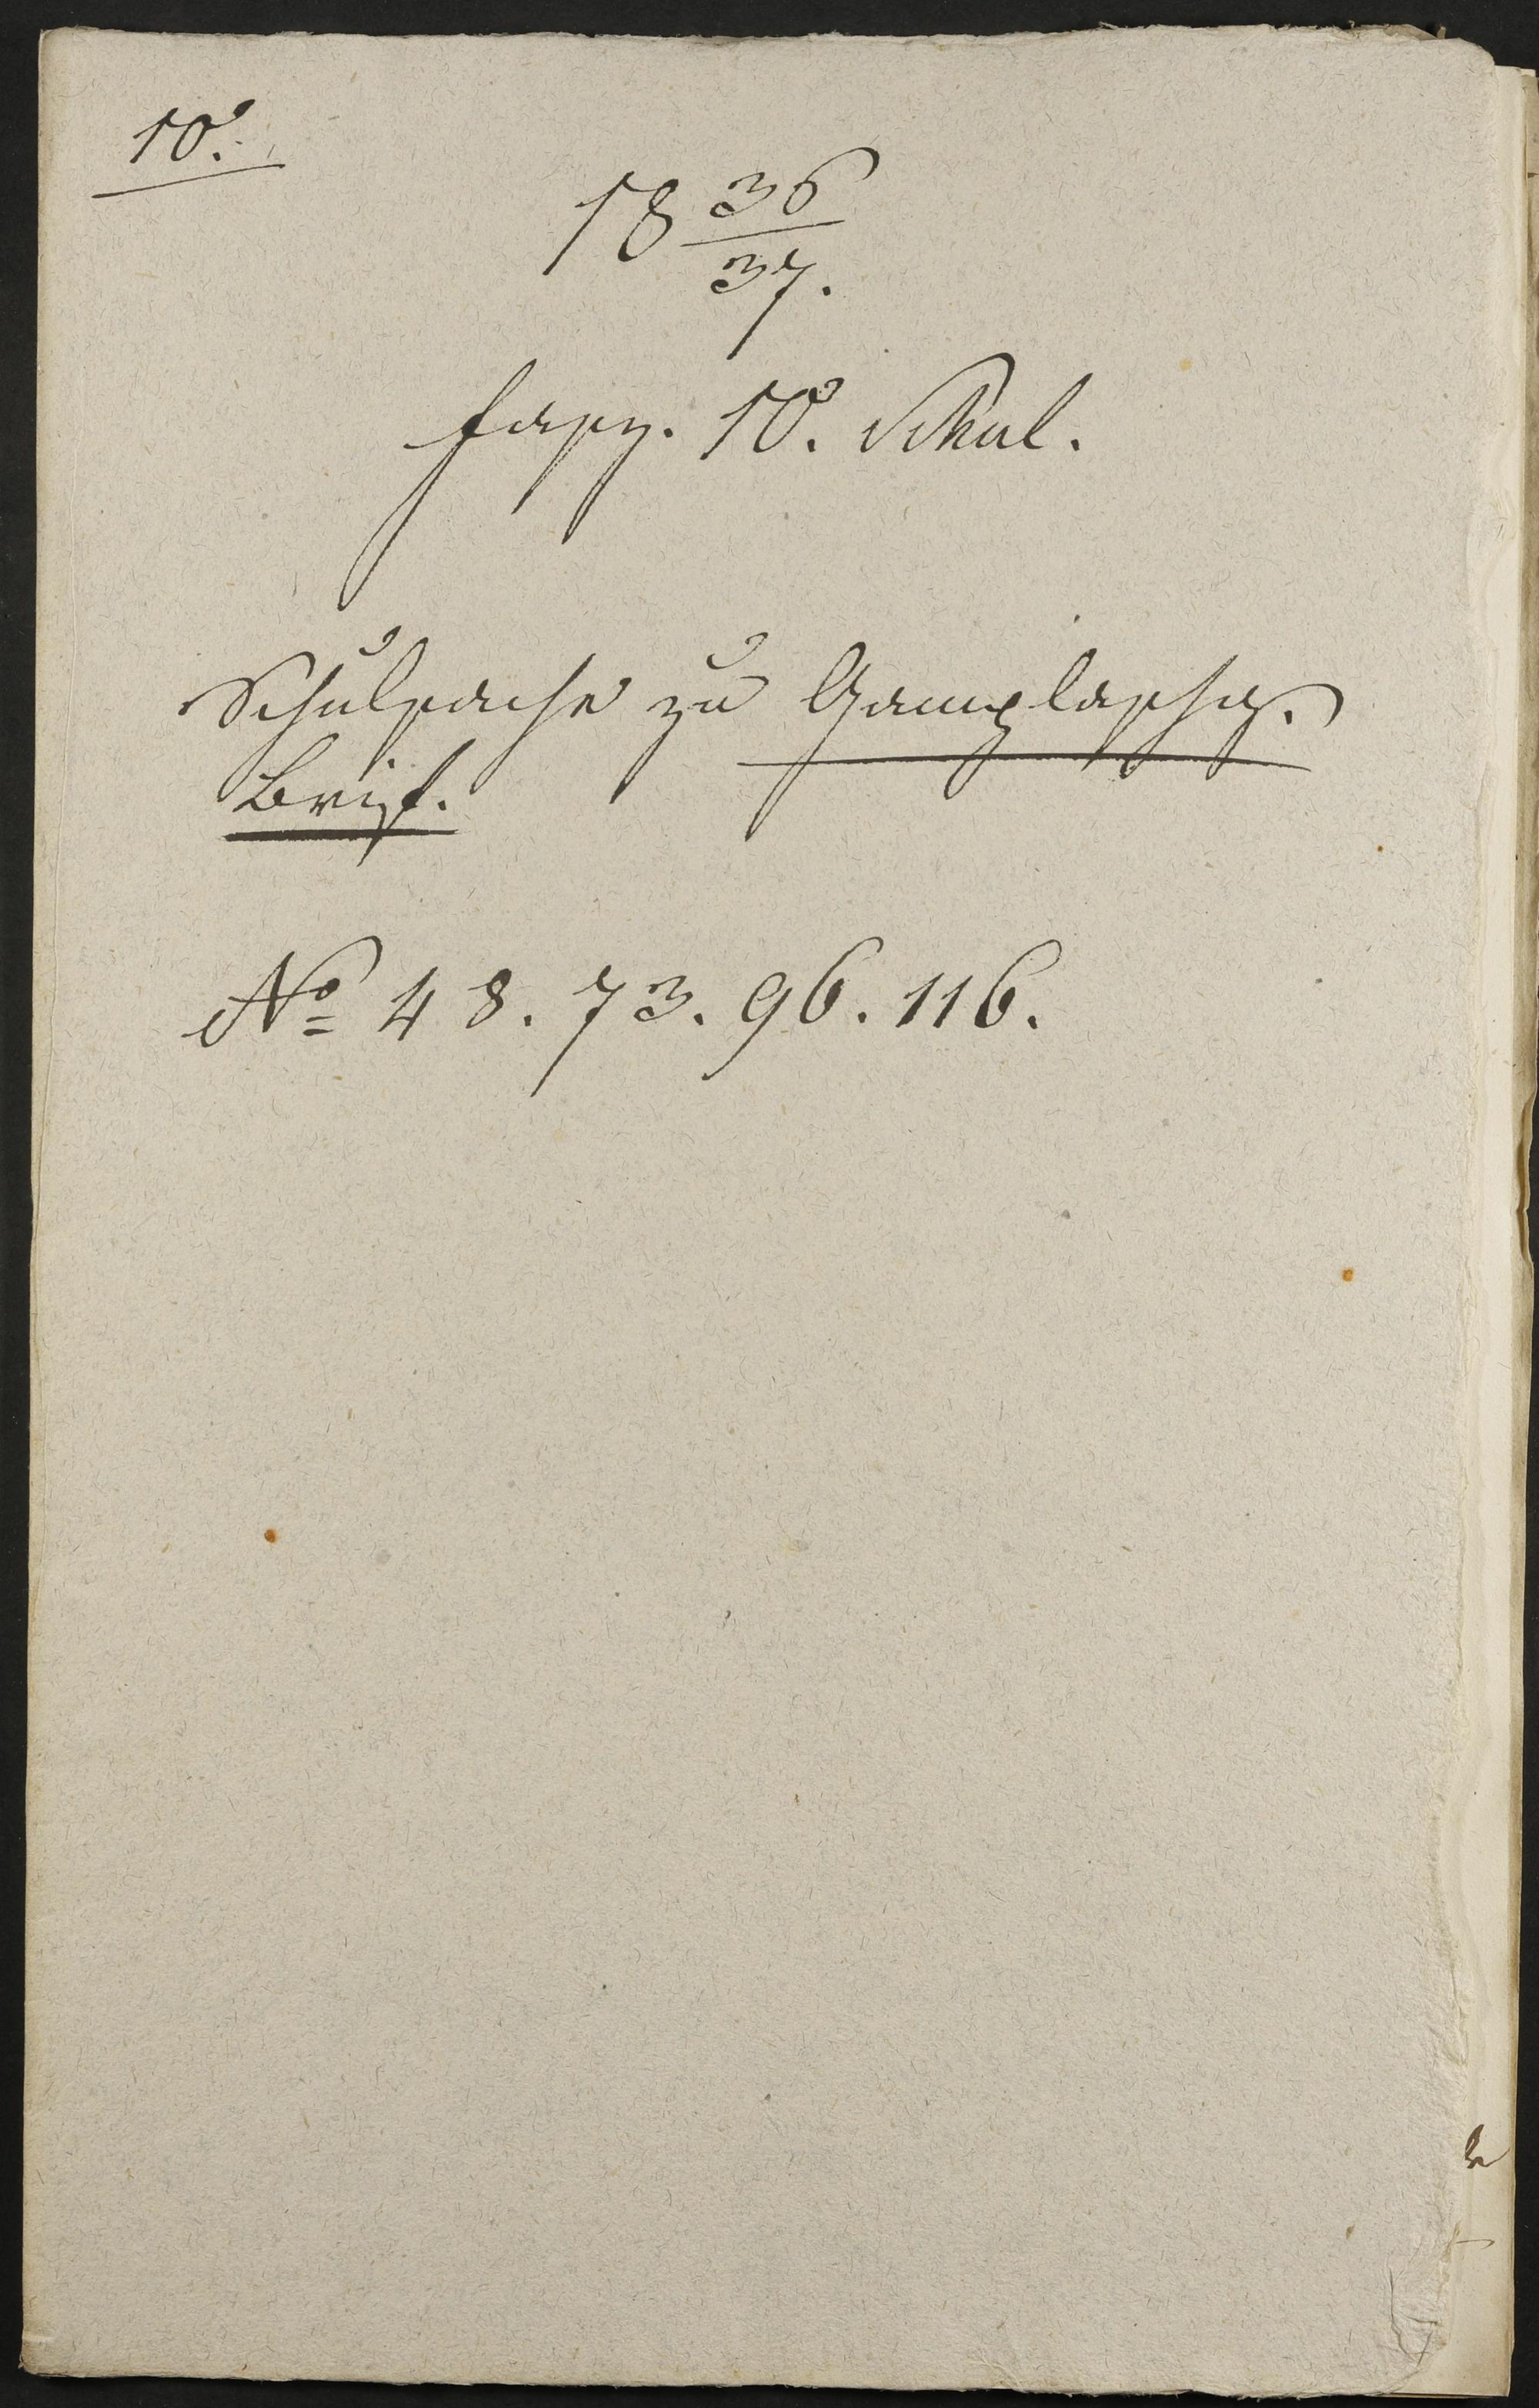 10.
18 36/37.
Fasz. 10. Schul.
Schulsache zu Gamplaschg.
Brix.
No 48. 73. 96. 116.